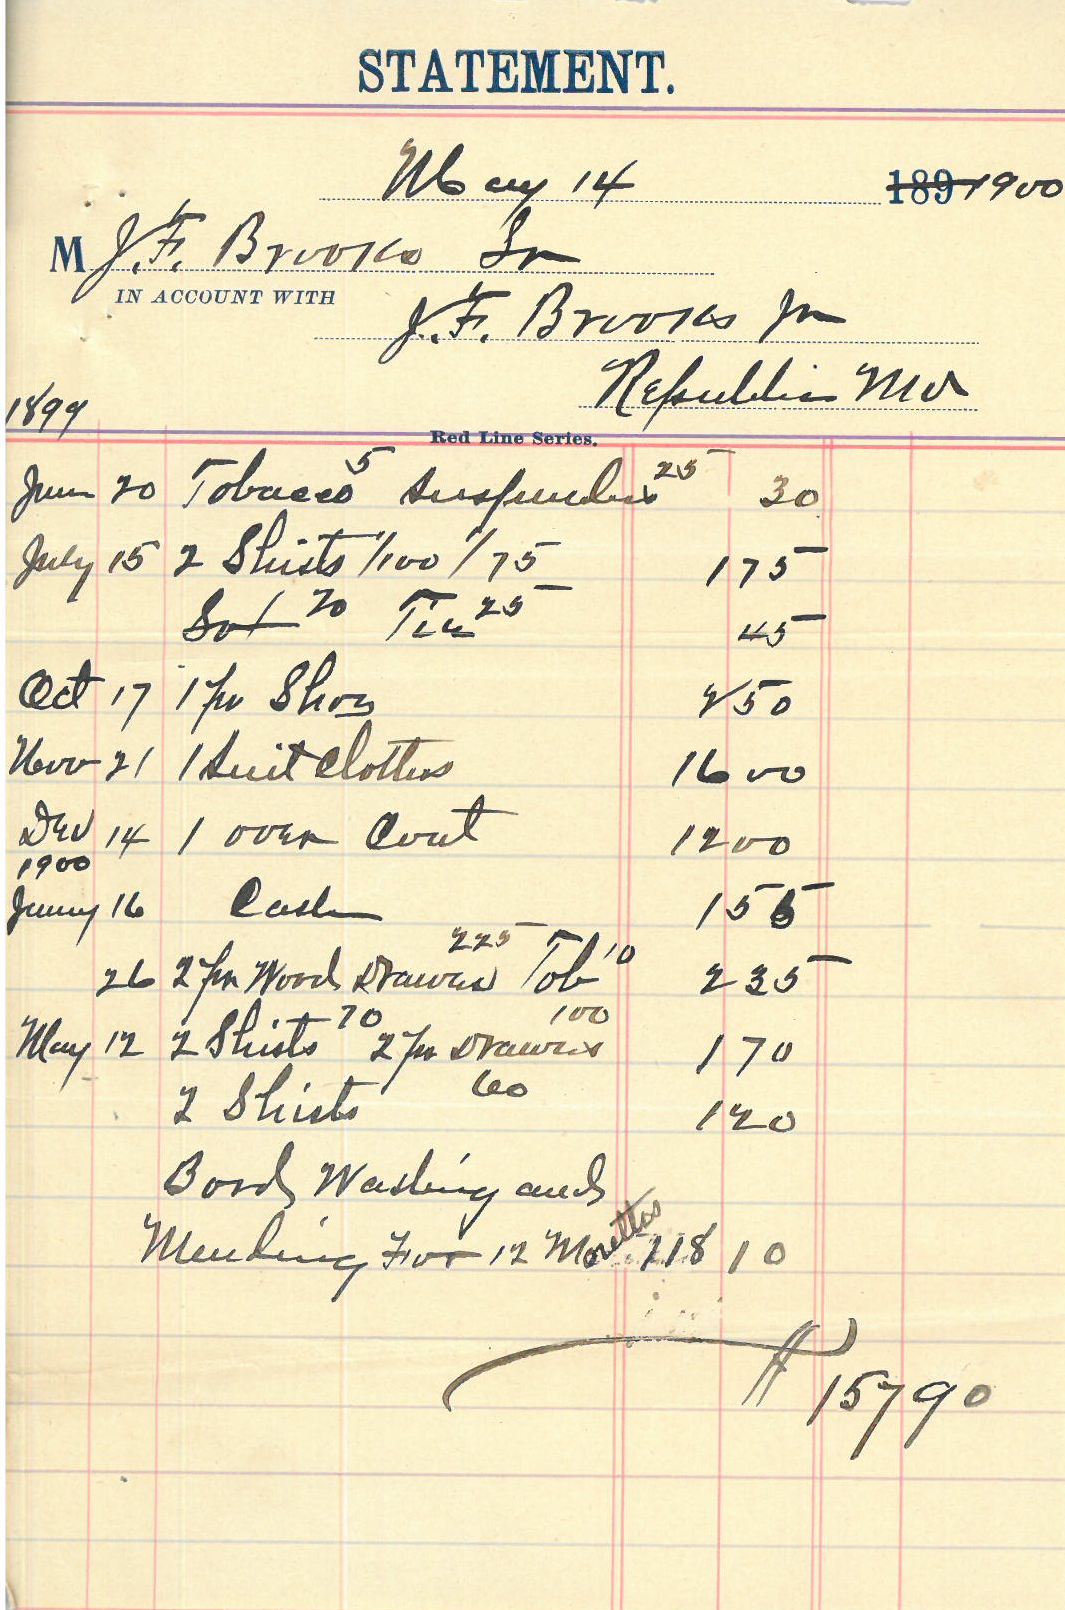 STATEMENT.
May 14 189 1900
M J. F. Brooks Sr
IN ACCOUNT WITH
J. F. Brooks Jr
Republic Mo
1899
Red Line Series.
June 20 Tobacco 5 Suspenders 25 30
July 15 2 Shirts 1/100 1/75 175
Sox 20 Tie 25 45
Oct 17 1 pr Shoes 250
Nov 21 1 Suit Clothes 16 00
Dec 14 1 over Coat 1200
1900
January 16 Cash 155
26 2 pr Wool Drawers 225 Tob 10 235
May 12 2 Shirts 70 2 pr Drawers 100 170
2 Shirts 60 120
Bord Washing and
Mending For 12 118 10
$ 157 90